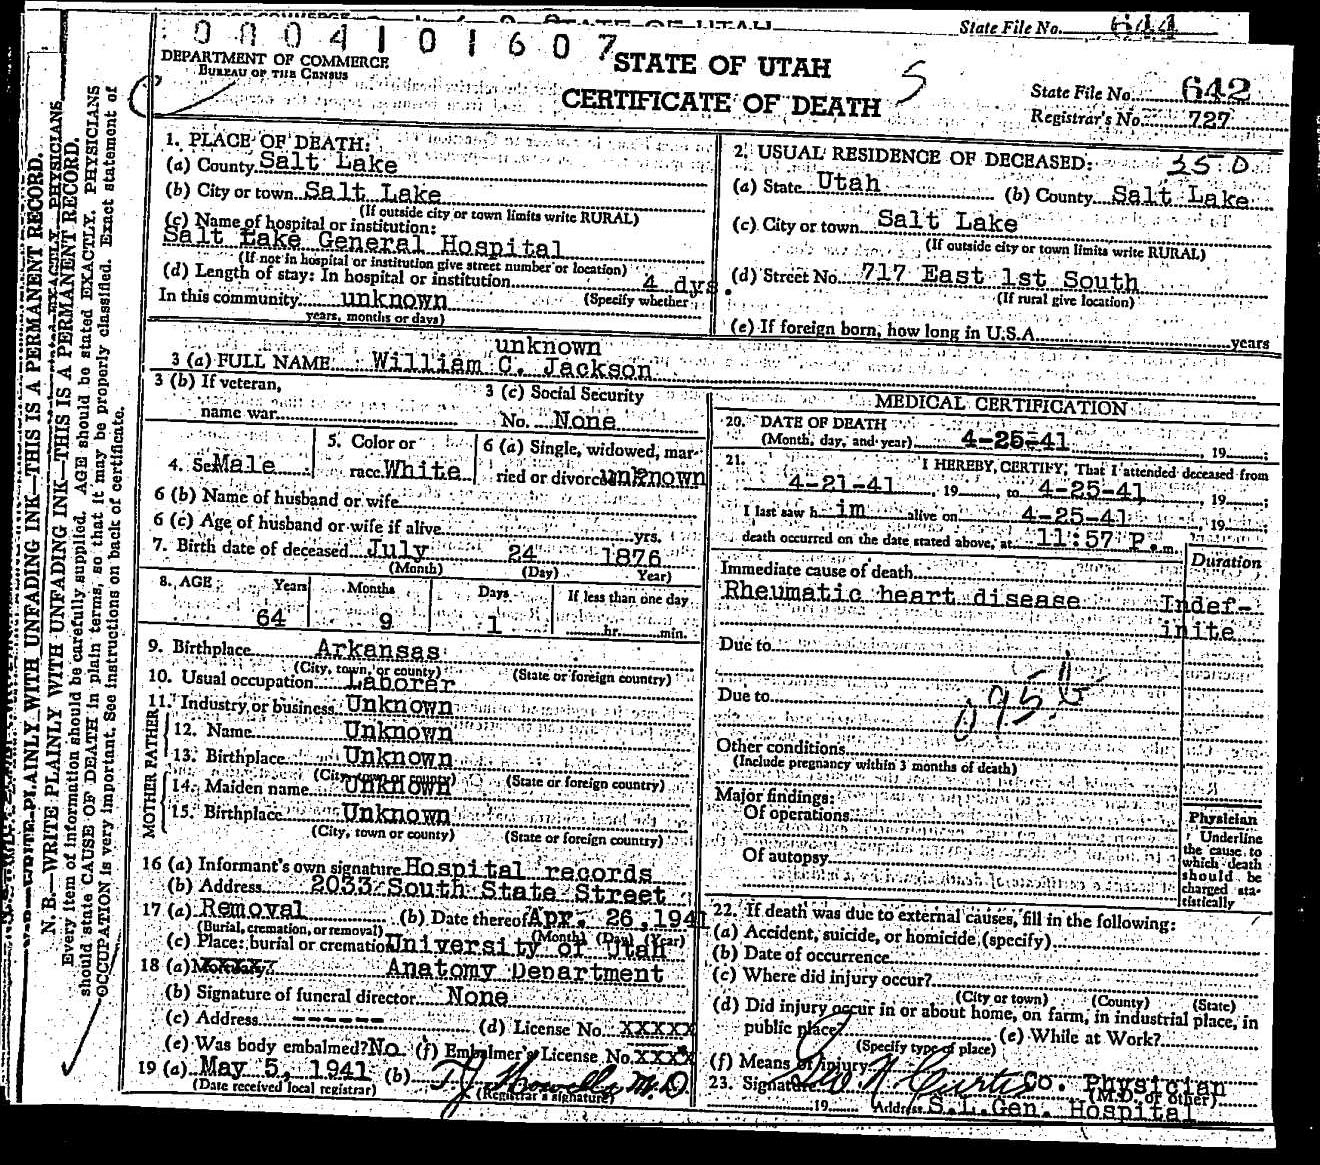 STATE OF UTAH
State File No. 644
0004101607
DEPARTMENT OF COMMERCE
BUREAU OF THE CENSUS
STATE OF UTAH
CERTIFICATE OF DEATH
S
State File No. 642
Registrar's No. 727
1. PLACE OF DEATH:
(a) County Salt Lake
(b) City or town Salt Lake
(If outside city or town limits write RURAL)
(c) Name of hospital or institution:
Salt Lake General Hospital
(If not in hospital or institution give street number or location)
(d) Length of stay: In hospital or institution 4 dys.
In this community unknown (Specify whether
years, months or days)
2. USUAL RESIDENCE OF DECEASED: 350
(a) State Utah (b) County Salt Lake
(c) City or town Salt Lake
(If outside city or town limits write RURAL)
(d) Street No. 717 East 1st South
(If rural give location)
(e) If foreign born, how long in U.S.A. years
unknown
3 (a) FULL NAME William C. Jackson
3 (b) If veteran,
name war
3 (c) Social Security
No. None
4. Sex Male
5. Color or
race White
6 (a) Single, widowed, mar-
ried or divorced unknown
6 (b) Name of husband or wife
6 (c) Age of husband or wife if alive yrs.
7. Birth date of deceased July 24 1876
(Month) (Day) Year)
8. AGE Years Months Days If less than one day
64 9 1 hr. min.
9. Birthplace Arkansas
(City, town, or county) (State or foreign country)
10. Usual occupation Laborer
11. Industry or business Unknown
FATHER
12. Name Unknown
13. Birthplace Unknown
(City, town or county) (State or foreign country)
MOTHER
14. Maiden name Unknown
15. Birthplace Unknown
(City, town or county) (State or foreign country)
16 (a) Informant's own signature Hospital records
(b) Address 2033 South State Street
17 (a) Removal (b) Date thereof Apr. 26, 1941
(Burial, cremation, or removal) (Month) (Day) (Year)
(c) Place: burial or cremation University of Utah
18 (a) Mortuary XXXXX Anatomy Department
(b) Signature of funeral director None
(c) Address ------ (d) License No. XXXXX
(e) Was body embalmed? No (f) Embalmer's License No. XXXX
19 (a) May 5, 1941 (b) T J Howells M.D
(Date received local registrar) (Registrar's signature)
MEDICAL CERTIFICATION
20. DATE OF DEATH
(Month, day, and year) 4-25-41 , 19 ;
21. I HEREBY CERTIFY, That I attended deceased from
4-21-41 , 19 , to 4-25-41 , 19 ;
I last saw h im alive on 4-25-41 , 19 ;
death occurred on the date stated above, at 11:57 P. m.
Duration
Immediate cause of death
Rheumatic heart disease Indef-
inite
Due to
095b
Due to
Other conditions
(Include pregnancy within 3 months of death)
Major findings:
Of operations
Of autopsy
Physician
Underline
the cause to
which death
should be
charged sta-
tistically
22. If death was due to external causes, fill in the following:
(a) Accident, suicide, or homicide (specify)
(b) Date of occurrence
(c) Where did injury occur?
(City or town) (County) (State)
(d) Did injury occur in or about home, on farm, in industrial place, in
public place?
(Specify type of place) (e) While at Work?
(f) Means of injury
23. Signature Geo N Curtis Co. Physician
(M.D. or other)
19 Address S.L.Gen. Hospital
N. B.—WRITE PLAINLY WITH UNFADING INK—THIS IS A PERMANENT RECORD.
Every item of information should be carefully supplied. AGE should be stated EXACTLY. PHYSICIANS
should state CAUSE OF DEATH in plain terms, so that it may be properly classified. Exact statement of
OCCUPATION is very important. See instructions on back of certificate.